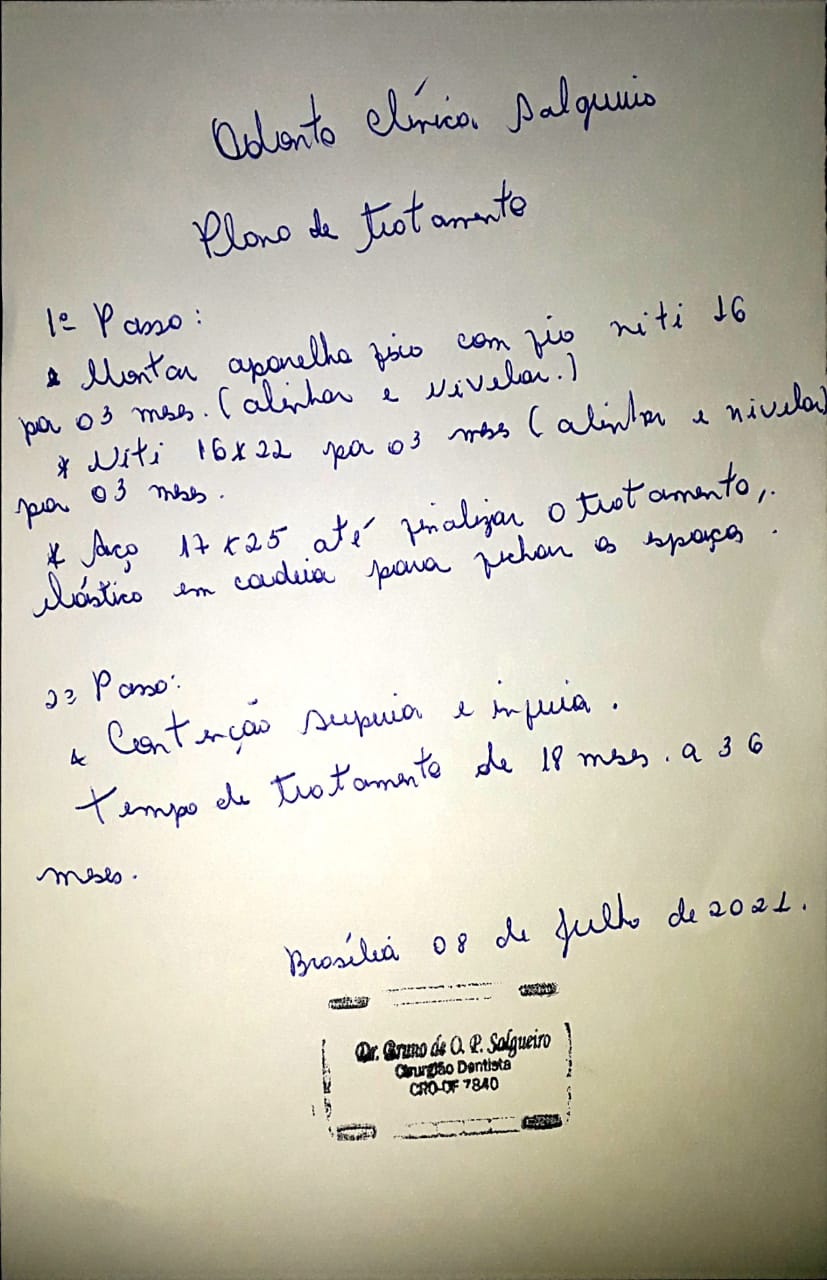 Odonto Clínica Salgueiro
Plano de tratamento
1º Passo:
* Montar aparelho fixo com fio niti 16
por 03 meses. (alinhar e nivelar.)
* Niti 16x22 por 03 meses (alinhar e nivelar)
por 03 meses.
* Aço 17x25 até finalizar o tratamento,
elástico em cadeia para fechar os espaços.
2º Passo:
* Contenção superior e inferior.
tempo de tratamento de 18 meses. a 36
meses.
Brasília 08 de Julho de 2021.
Dr. Bruno de O. P. Salgueiro
Cirurgião Dentista
CRO-DF 7840